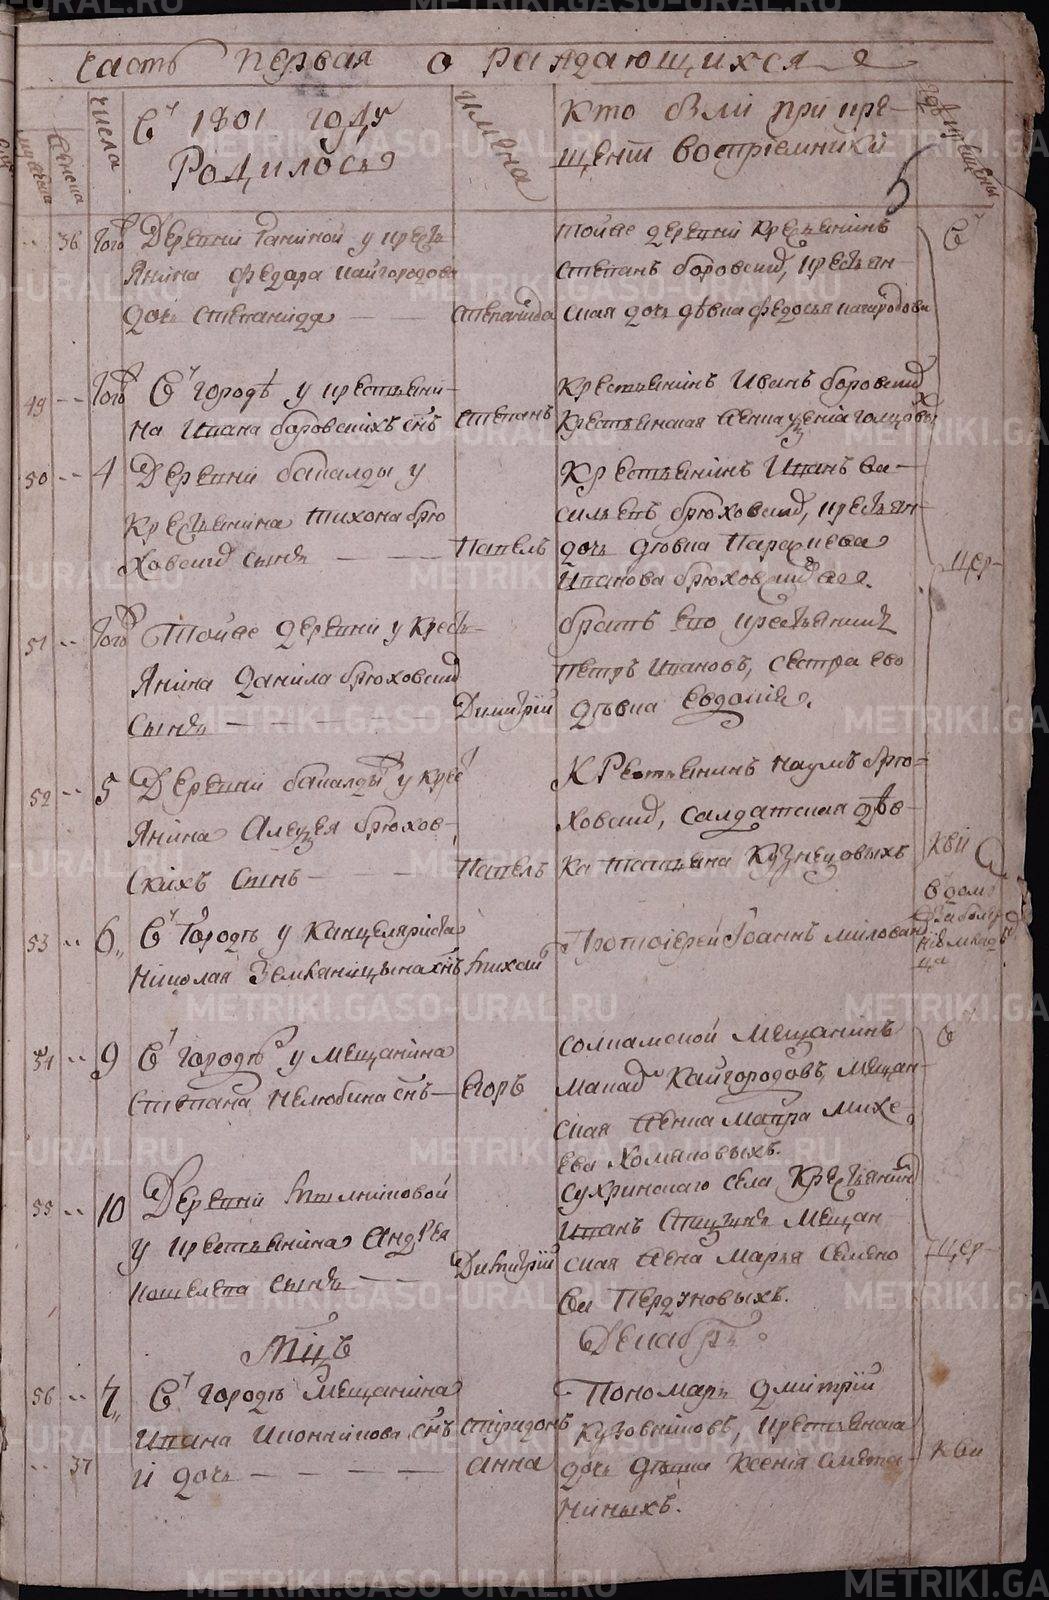 часть первая о раждающихся
мужеска
женска
числа
Въ 1801 году
Родилось
имена
Кто были при кре-
щенїи воспрїемники
гдѣ крещены
5
36 Того Деревни
у кресть-
янина Федора Кайгородова
дочь Степанида
Степанида
тойже деревни крестьянинъ
Степанъ Боровской, крестьян-
ская дочь дѣвка Федосья Кайгородова
Въ
49 Того Въ городѣ у крестьяни-
на Ивана Боровскихъ снъ
Степанъ
Крестьянинъ Иванъ Боровской
Крестьянская женка
50 4 Деревни Бакалды у
Крестьянина Тихона Брю
ховскид сынъ
Павелъ
Крестьянинъ Иванъ Ва-
сильевъ Брюховскид, крестьян-
дочь дѣвка Парасковья
Иванова Брюховскид
цер-
51 Того Тойже деревни у кресть-
янина Данила Брюховскид
сынъ
Димитрїй
братъ его крестьянинъ
Петръ Ивановъ, сестра ево
дѣвка Евдокїя.
52 5 Деревни Бакалды у крес
янина Алецея Брюхов-
скихъ сынъ
Павелъ
Крестьянинъ Наумъ Брю-
ховскид, салдатская дѣв-
ка Татьяна Кузнецовыхъ
кви
53 6 Въ городѣ у Канцеляриста
Николая Земляницына снъ
Михаил
Протоїерей Їоаннъ Милован
Въ доме
54 9 Въ городѣ у мещанина
Степана Нелюбина снъ
Егоръ
соликамской мещанинъ
Кайгородовъ, мещан-
ская женка Мавра Михе
ева Хомяковыхъ.
Въ
55 10 Деревни
у крестьянина Андрея
Кошелева сынъ
Димитрїй
Сухринскаго села Крестьянинъ
Иванъ
мещан
ская жена Марья Семено
ва Пердуновыхъ.
цер-
Мцъ
Декабрь
56 7 Въ городѣ мещанина
Ивана Иконникова снъ
Спиридонъ
Пономарь Дмитрїй
Кузовниковъ, крестьянска
37 и дочь
Анна
дочь дѣвка Ксенїя Смета
ниныхъ.
кви